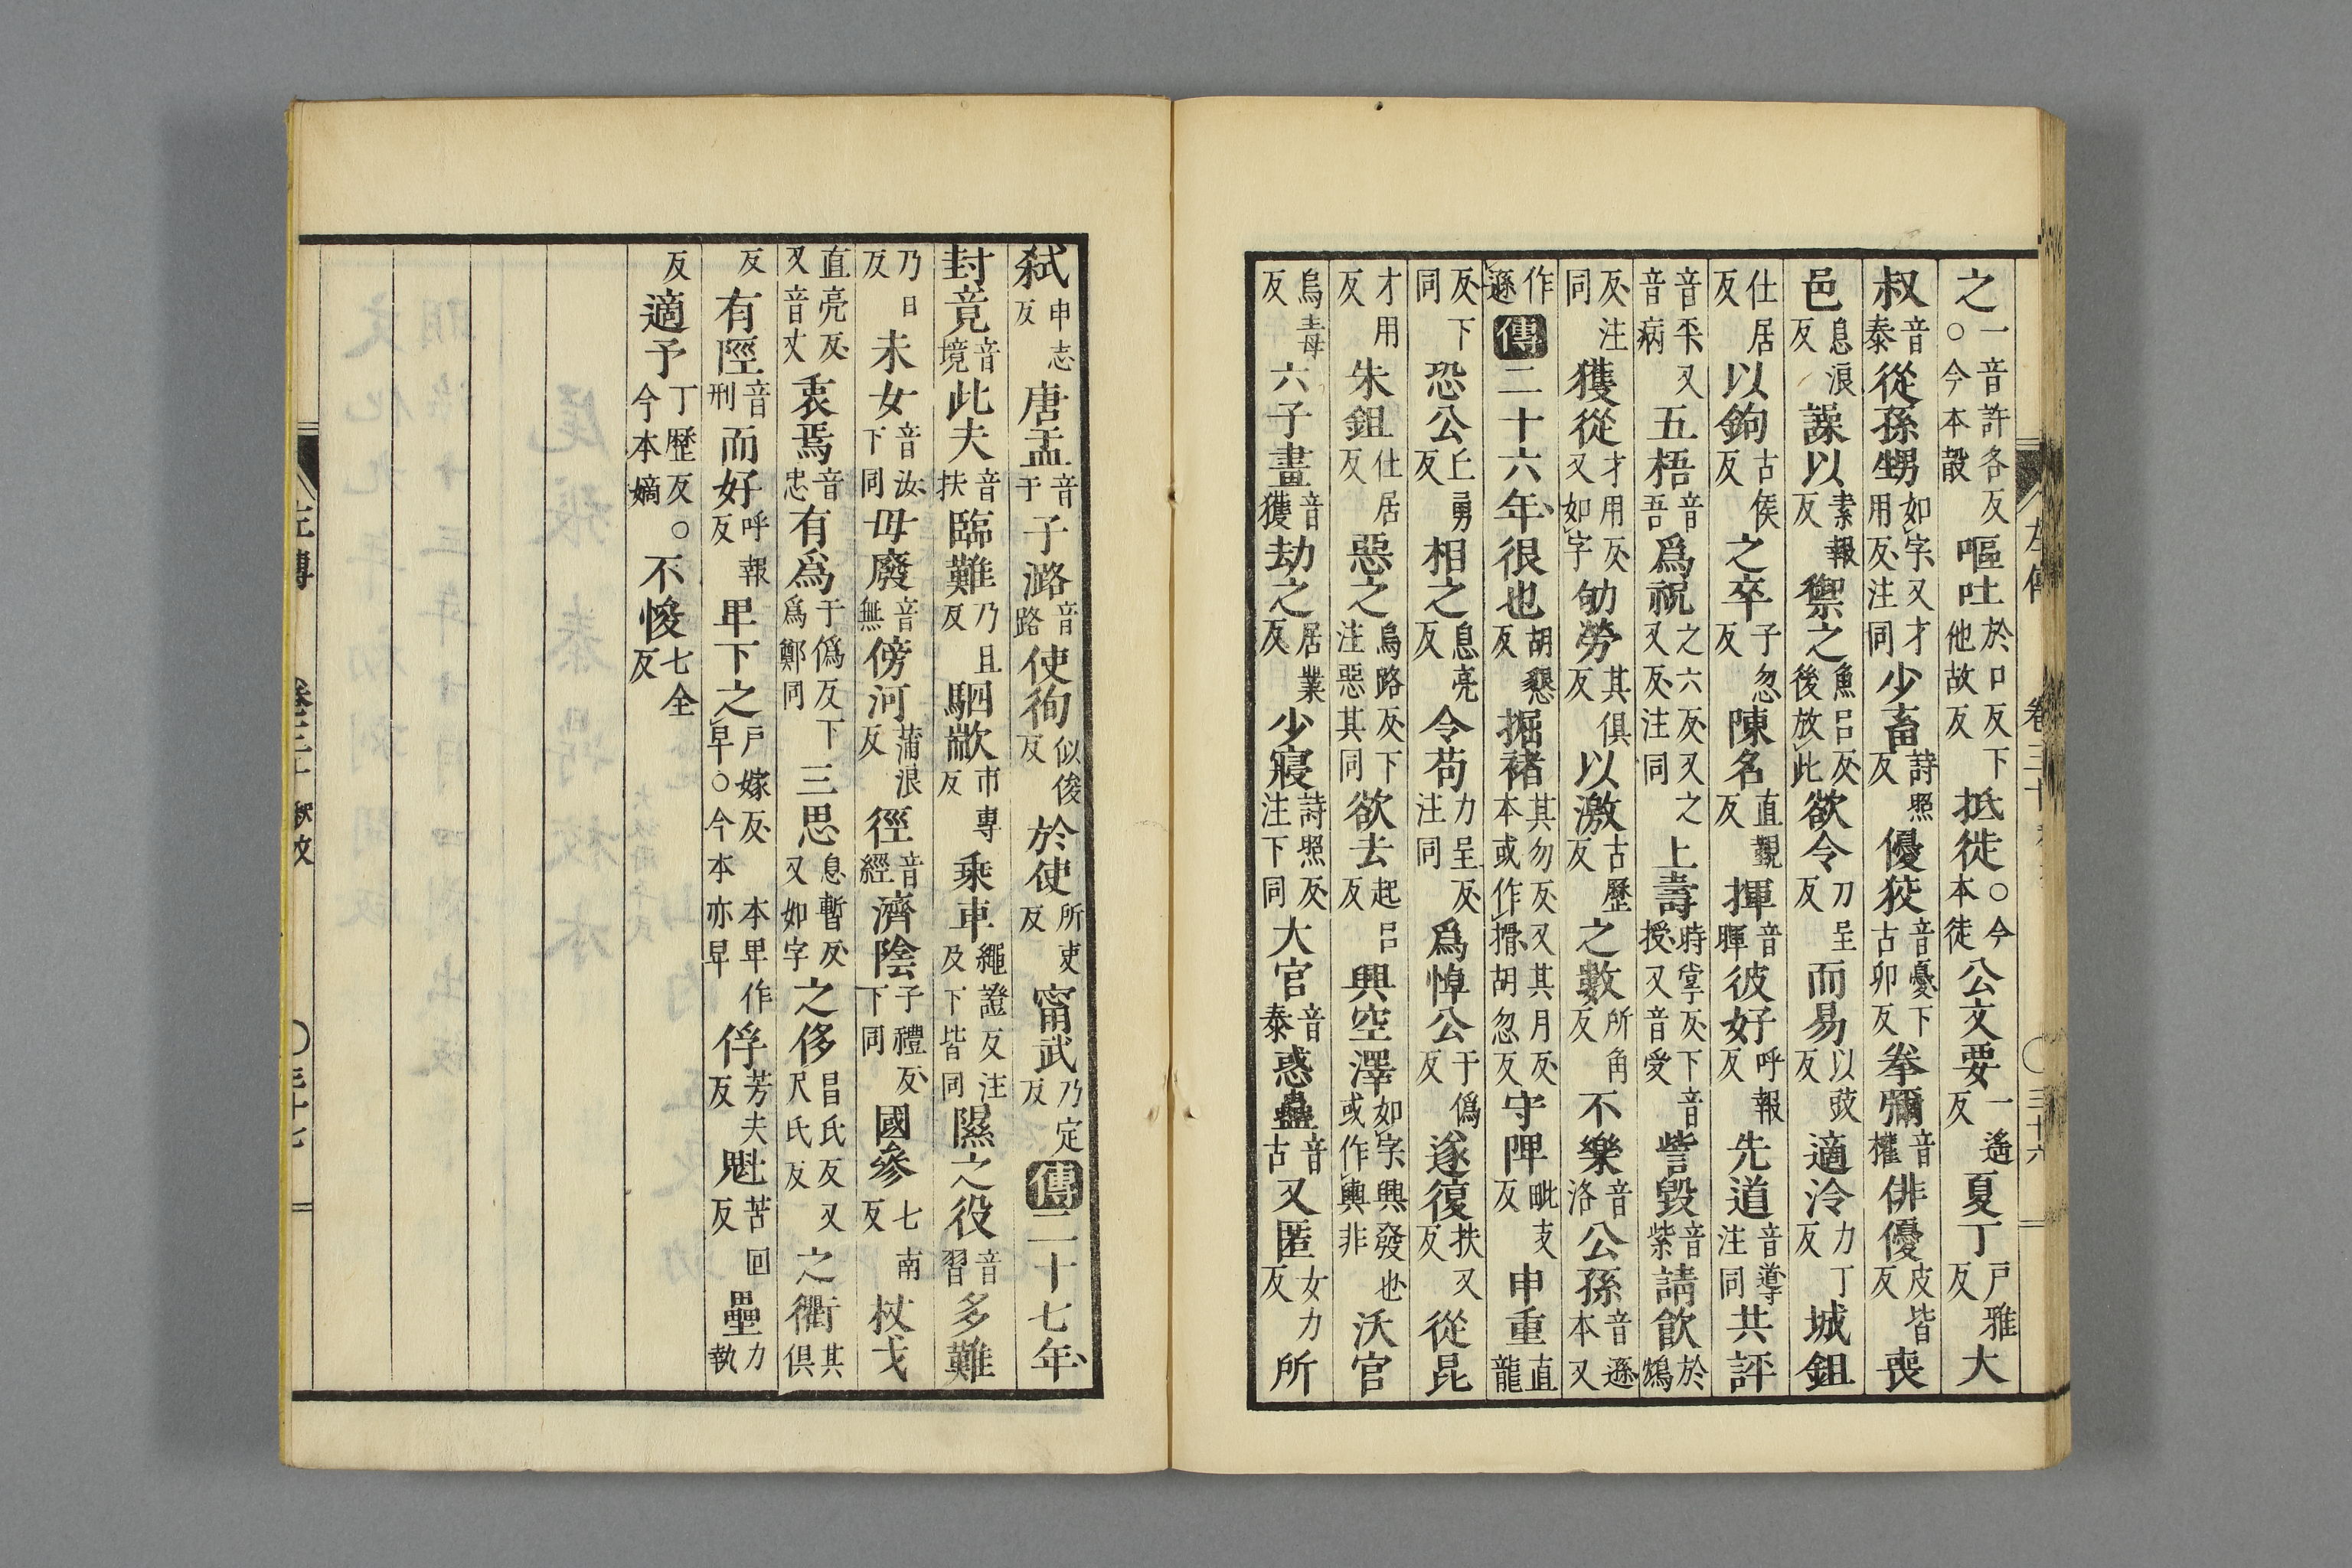 之一音許各反○今本㱿嘔吐於口反下他故反抵徙○今本徒公文要一遙反夏丁戶雅反大
叔音泰從孫甥如字又才用反注同少畜詩照反優狡音憂下古卯反拳彌音權俳優皮皆反喪
邑息浪反譟以素報反禦之魚呂反後放此欲令力呈反而易以豉反適泠力丁反城鉏
仕居反以鉤古侯反之卒子忽反陳名直覲反揮音暉彼好呼報反先道音導注同共評
音平又音病五梧音吾爲祝之六反又之又反注同上壽時掌反下音授又音受訾毀音紫請飲於鴆
反注同獲從才用反又如字劬勞其俱反以激古歷反之數所角反不樂音洛公孫音遜本又
作遜傳二十六年很也胡懇反掘褚其勿反又其月反本或作搰胡忽反守陴毗支反申重直龍
反下同恐公丘勇反相之息亮反令苟力呈反注同爲悼公于僞反遂復扶又反從昆
才用反朱鉏仕居反惡之烏路反下注惡其同欲去起呂反興空澤如字興發也或作輿非沃官
烏毒反六子畫音獲劫之居業反少寢詩照反注下同大官音泰惑蠱音古又匿女力反所
弑申志反唐盂音于子潞音路使徇似俊反於使所吏反甯武乃定反傳二十七年
封竟音境此夫音扶臨難乃旦反駟歂市專反乘車繩證反注及下皆同隰之役音習多難
乃旦反未女音汝下同毋廢音無傍河蒲浪反徑音經濟陰子禮反下同國參七南反杖戈
直亮反又音丈衷焉音忠有爲于僞反下爲鄭同三思息暫反又如字之侈昌氏反又尺氏反之衢其俱
反有陘音刑而好呼報反早下之戶嫁反本早作早○今本亦早俘芳夫反魁苦回反壘力執
反適予丁歷反○今本嫡不悛七全反
左傳
卷三十
釋文
三十六
左傳
卷三十
釋文
三十七